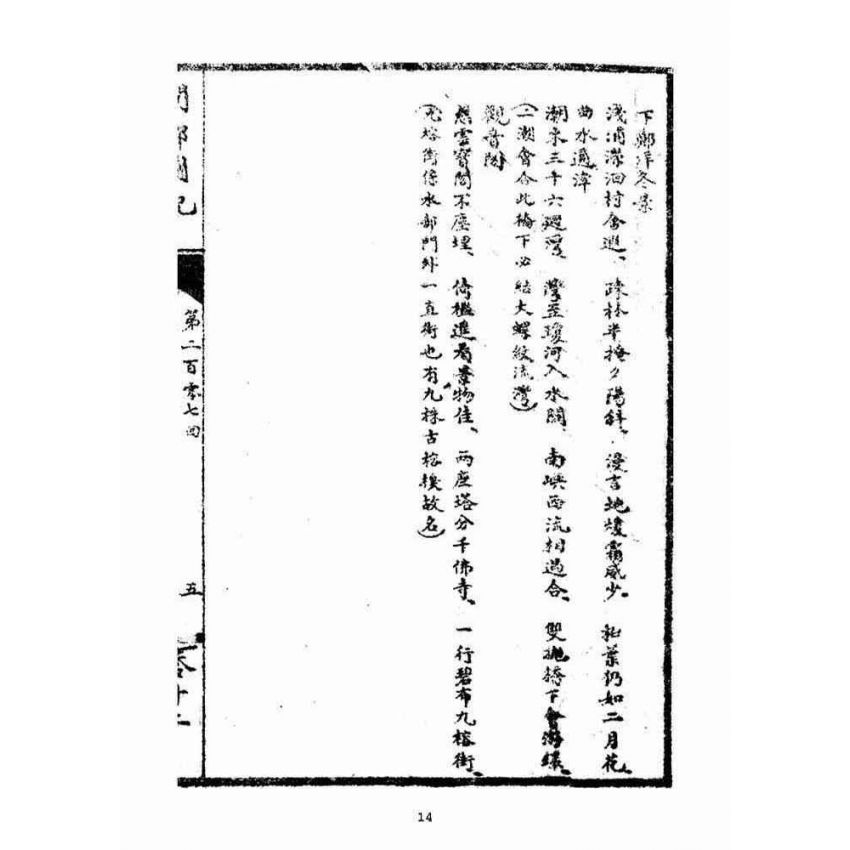 下鄭洋冬景
淺浦濴洄村舍遮、疎林半掩夕陽斜、漫言地煖霜威少、紅葉仍如二月花、
曲水通津
潮來三十六灣、灣至瓊河入水關、南峽西流相過合、雙拋橋下會
(二潮會合此橋下必結大螺紋流灣)
觀音閣
慈雲寶閣不塵埋、倚檻進看景物佳、兩座塔分千佛寺、一行碧布九榕街、
(九榕街係水部門外一直街也有九株古榕樹故名)
第二百零七回
五
14